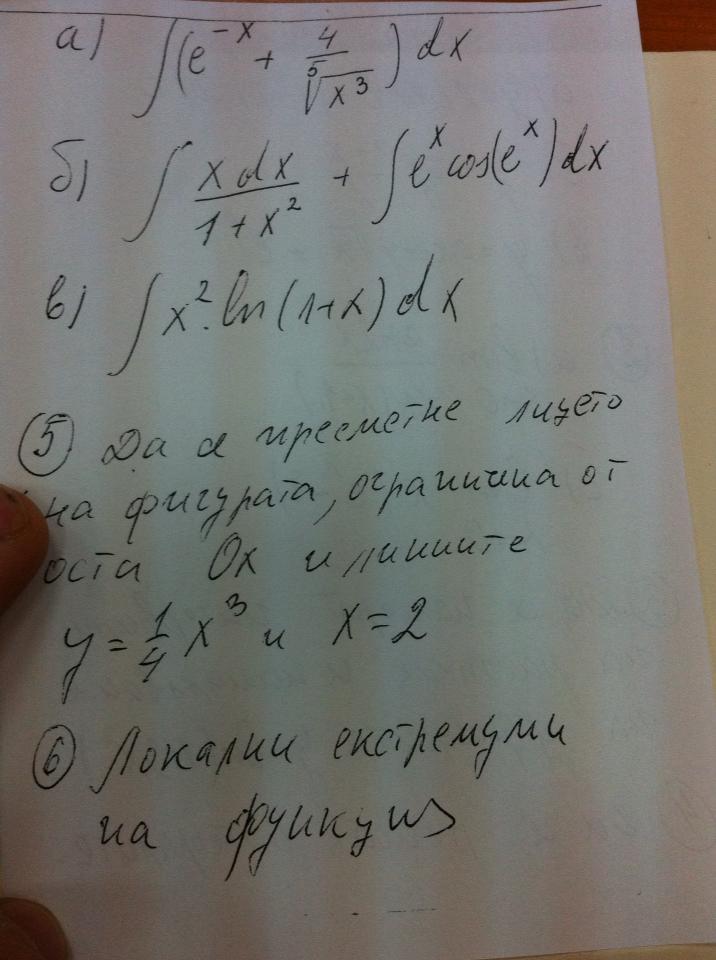 а) ∫(e^{-x} + 4/⁵√x³) dx
б) ∫ x dx/(1+x²) + ∫ e^x cos(e^x) dx
в) ∫ x².ln(1+x) dx
⑤ Да се пресметне лицето
на фигурата, ограничена от
ости Ox и линиите
y = 1/4 x³ и x = 2
⑥ Локални екстремуми
на функция